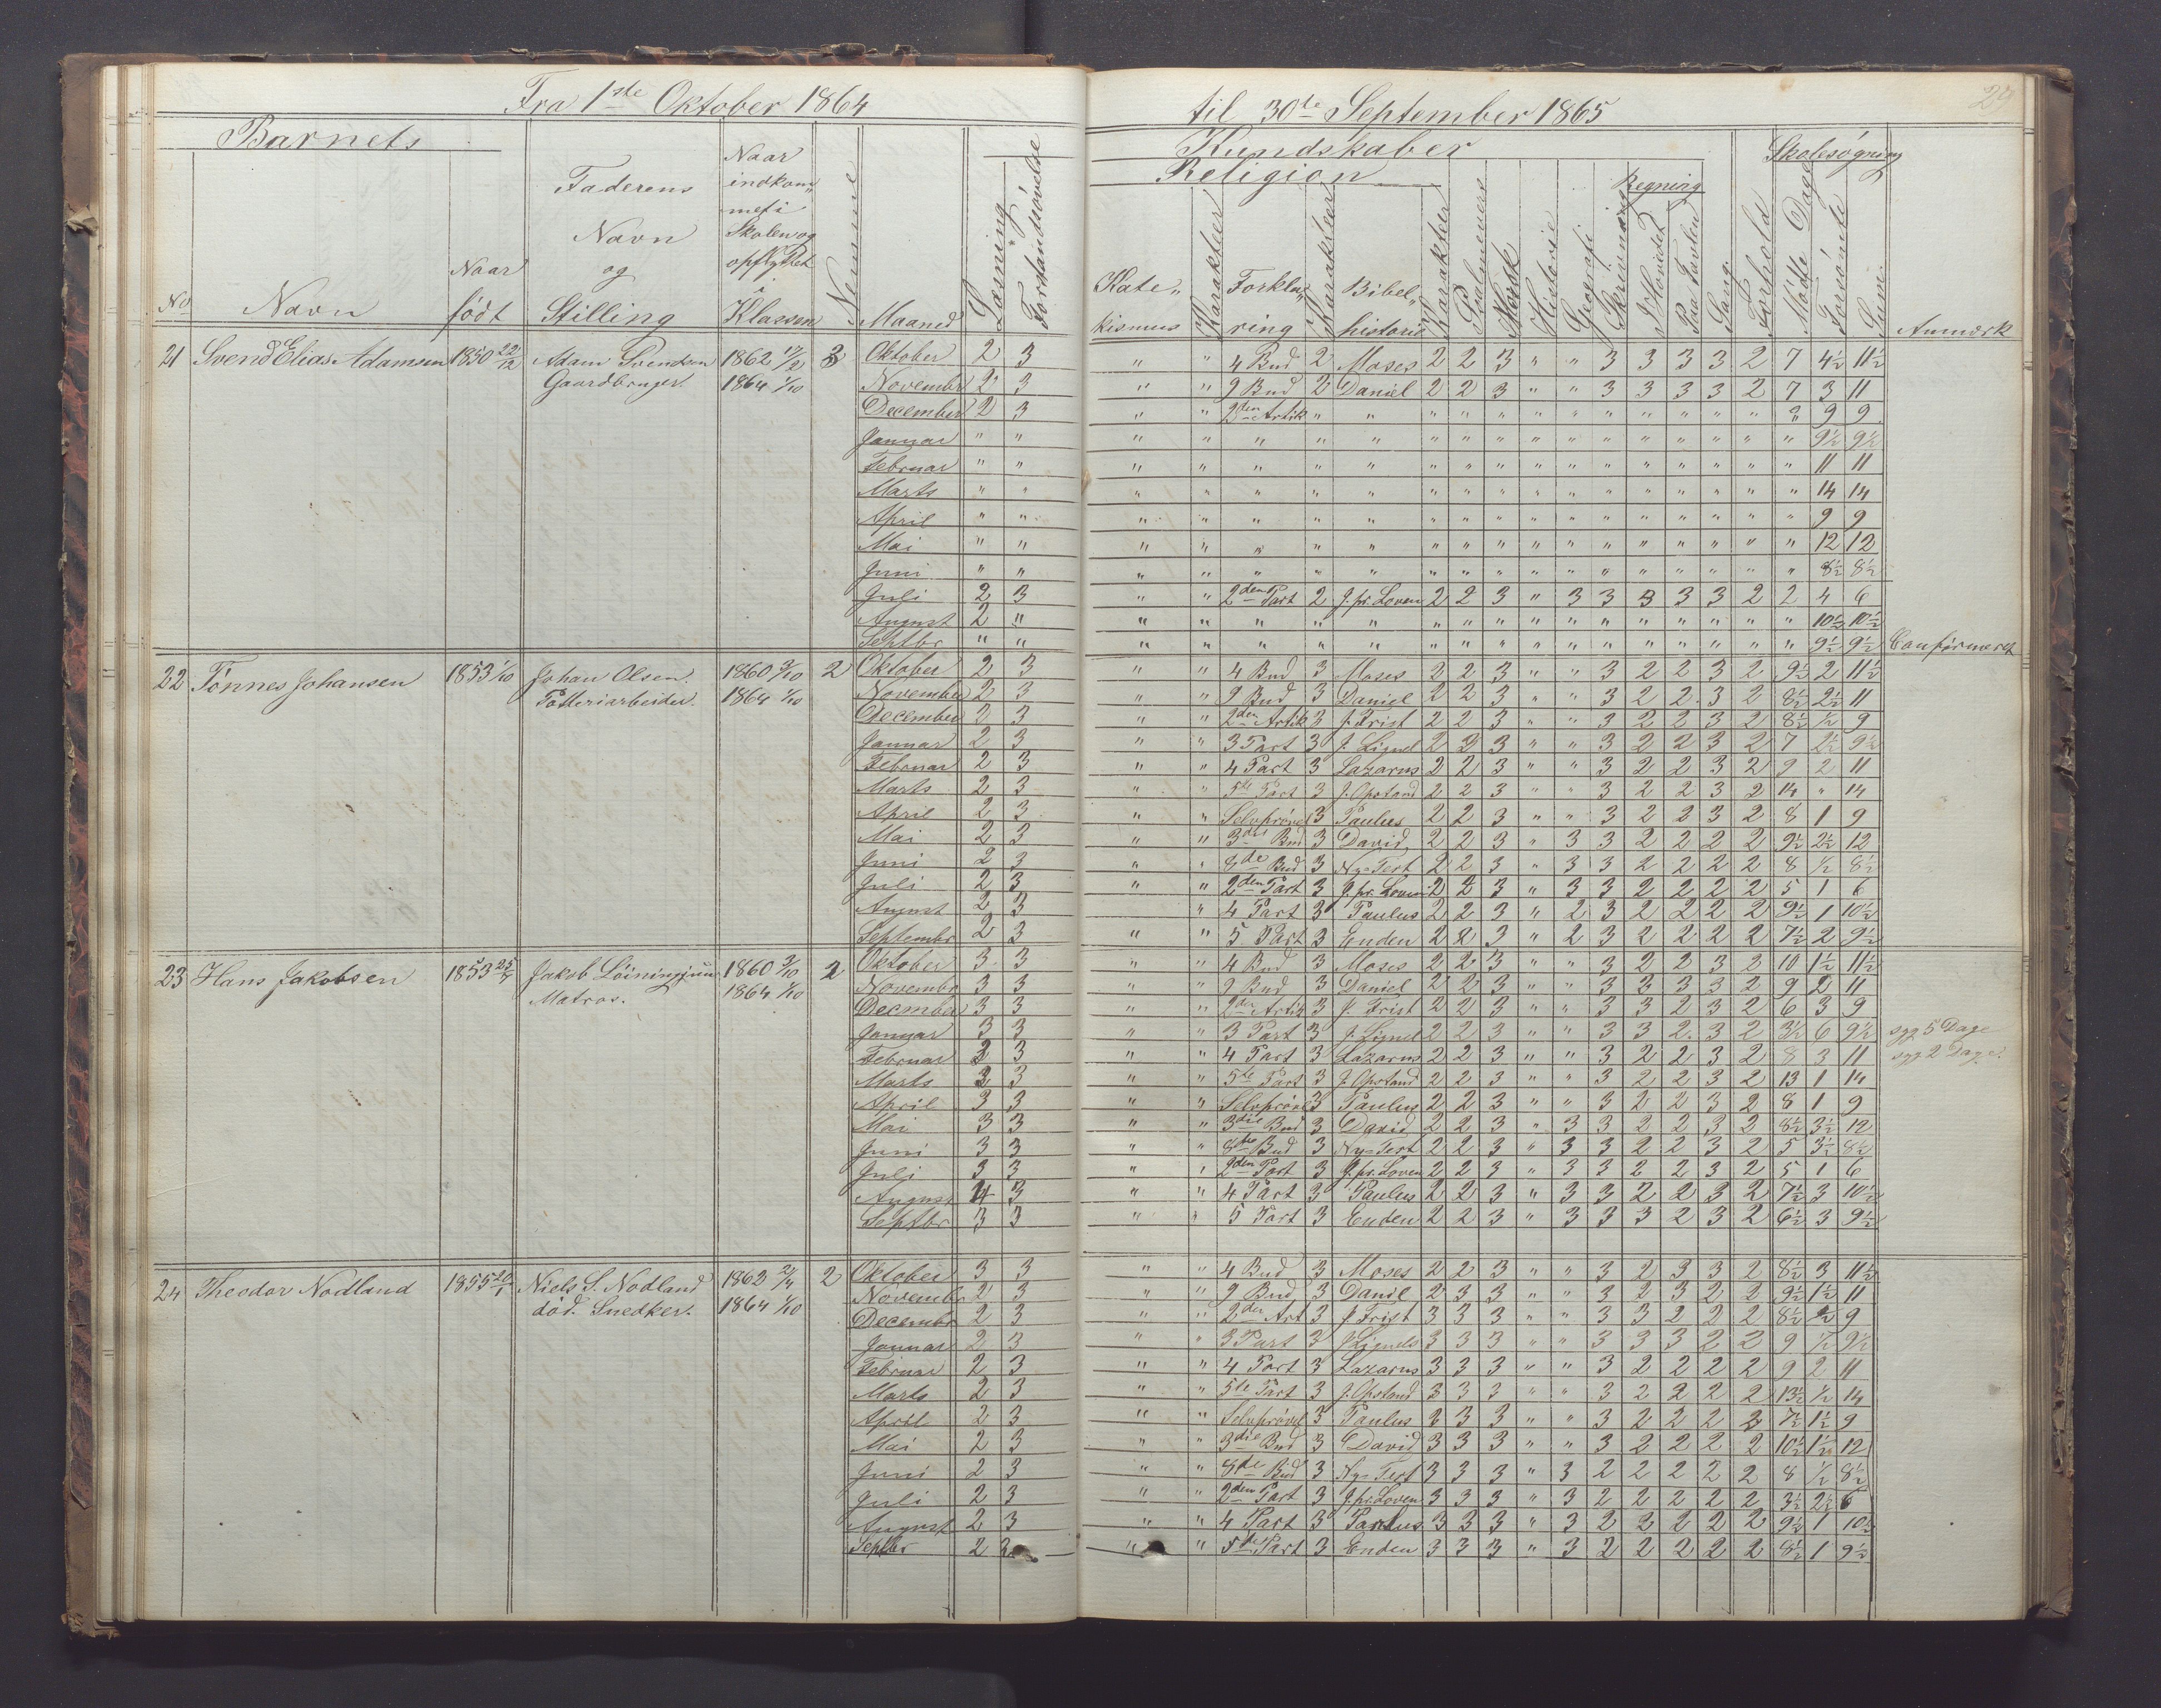 Fra 1ste Oktober 1864 til 30te September 1865
29
Barnets
Kundskaber
Skolesøgning
Religion
Regning
No Navn Naar født Faderens Navn og Stilling Naar indkommet i Skolen og opflyttet i Klassen Nemme Maaned Læsning Forstandsøvelse Katekismus Karakter Forklaring Karakter Bibelhistorie Karakter Psalmevers Norsk Historie Geografi Skrivning I Hovedet Paa Tavlen Sang Forhold Mödte Dage Forsömte Sum Anmærk
21 Svend Elias Adamsen 1850 22/12 Adam Svendsen 1862 17/2 3 Oktober 2 3 " " 4 Bud 2 Moses 2 2 3 " " 3 3 3 3 2 7 4½ 11½
Gaardbruger. 1864 1/10 Novembr 2 3 " " 9 Bud 2 Daniel 2 2 3 " " 3 3 3 3 2 7 3 11
December 2 3 " " 2den Artik " " " " " " " " " " " " " 9 9
Januar " " " " " " " " " " " " " " " " " " 9½ 9½
Februar " " " " " " " " " " " " " " " " " " 11 11
Marts " " " " " " " " " " " " " " " " " " 14 14
April " " " " " " " " " " " " " " " " " " 9 9
Mai " " " " " " " " " " " " " " " " " " 12 12
Juni " " " " " " " " " " " " " " " " " " 8½ 8½
Juli 2 3 " " 2den Part 2 J. pr. Loven 2 2 3 " 3 3 3 3 3 2 2 4 6
August 2 " " " " " " " " " " " " " " " " " 10½ 10½
Septbr " " " " " " " " " " " " " " " " " " 9½ 9½ Confirmeret
22 Tönnes Johansen 1853 1/10 Johan Olsen. 1860 3/10 2 Oktober 2 3 " " 4 Bud 3 Moses 2 2 3 " " 3 2 2 3 2 9½ 2 11½
Potteriarbeider. 1864 1/10 November 2 3 " " 9 Bud 3 Daniel 2 2 3 " " 3 2 2 3 2 8½ 2½ 11
December 2 3 " " 2den Artik 3 J. Frist 2 2 3 " " 3 2 2 3 2 8½ ½ 9
Januar 2 3 " " 3 Part 3 J. Lignel 2 2 3 " " 3 2 2 3 2 7 2½ 9½
Februar 2 3 " " 4 Part 3 Lazarus 2 2 3 " " 3 2 2 3 2 9 2 11
Marts 2 3 " " 5te Part 3 J. Opstand 2 2 3 " " 3 2 2 3 2 14 " 14
April 2 3 " " Selvprövel 3 Paulus 2 2 3 " " 3 2 2 3 2 8 1 9
Mai 2 3 " " 3die Bud 3 David 2 2 3 " 3 3 2 2 2 2 9½ 2½ 12
Juni 2 3 " " 8de Bud 3 Ny-Test 2 2 3 " 3 3 2 2 2 2 8 ½ 8½
Juli 2 3 " " 2den Part 3 J. pr. Loven 2 2 3 " 3 3 2 2 2 2 5 1 6
August 2 3 " 4 Part 3 Paulus 2 2 3 " 2 3 2 2 2 2 9½ 1 10½
Septembr 2 3 " " 5 Part 3 Enden 2 2 3 " 2 3 2 2 2 2 7½ 2 9½
23 Hans Jakobsen 1853 25/7 Jakob 1860 3/10 2 Oktober 3 3 " " 4 Bud 3 Moses 2 2 3 " " 3 2 2 3 2 10 1½ 11½
Matros. 1864 1/10 Novembr 3 3 " " 9 Bud 3 Daniel 2 2 3 " " 3 3 3 3 2 9 2 11
Decmber 3 3 " " 2den Artik 3 J. Frist 2 2 3 " " 3 3 2 3 2 6 3 9
Januar 3 3 " " 3 Part 3 J. Lignel 2 2 3 " " 3 3 2 3 2 3½ 6 9½ syg 5 Dage
Februar 3 3 " " 4 Part 3 Lazarus 2 2 3 " " 3 2 2 3 2 8 3 11 syg 2 Dage.
Marts 3 3 " " 5te Part 3 J. Opstand 2 2 3 " " 3 2 2 3 2 13 1 14
April 3 3 " " Selvprövel 3 Paulus 2 2 3 " " 3 2 2 3 2 8 1 9
Mai 3 3 " " 3die Bud 3 David 2 2 3 " 3 3 2 2 3 2 8½ 3½ 12
Juni 3 3 " " 8de Bud 3 Ny-Test 2 2 3 " 3 3 2 2 3 2 5 3½ 8½
Juli 3 3 " " 2den Part 3 J. pr. Loven 2 2 3 " 3 3 2 2 3 2 5 1 6
August 4 3 " " 4 Part 3 Paulus 2 2 3 " 3 3 2 2 3 2 7½ 3 10½
Septbr 3 3 " " 5 Part 3 Enden 2 2 3 " 3 3 3 2 3 2 6½ 3 9½
24 Theodor Nodland 1855 20/1 Niels S. Nodland 1862 2 Oktober 3 3 " " 4 Bud 3 Moses 2 2 3 " " 3 2 3 3 2 8½ 3 11½
död. Snedker. 1864 1/10 November 2 3 " " 9 Bud 3 Daniel 2 3 3 " " 3 2 3 2 2 9½ 1½ 11
Decembr 2 3 " " 2den Art 3 J. Frist 3 3 3 " " 3 3 2 2 2 8½ ½ 9
Januar 2 3 " " 3 Part 3 J. Lignels 3 3 3 " " 3 3 3 2 2 9 ½ 9½
Februar 2 3 " " 4 Part 3 Lazarus 3 3 3 " " 3 2 2 2 2 9 2 11
Marts 2 3 " " 5te Part 3 J. Opstand 3 3 3 " " 3 2 2 2 2 13½ ½ 14
April 2 3 " " Selvprövel 3 Paulus 3 3 3 " " 3 2 2 2 2 7½ 1½ 9
Mai 2 3 " " 3die Bud 3 David 3 3 3 " " 3 2 2 2 2 10½ 1½ 12
Juni 2 3 " " 8de Bud 3 Ny-Test 3 3 3 " 3 2 2 2 2 2 8 ½ 8½
Juli 2 3 " " 2den Part 3 J. pr. Loven 3 3 3 " 3 2 2 2 2 2 3½ 2½ 6
August 2 3 " " 4 Part 3 Paulus 3 3 3 " 3 2 2 2 2 2 9½ 1 10½
Septbr 2 3 " " 5de Part 3 Enden 3 3 3 " 3 2 2 2 2 2 8½ 1 9½